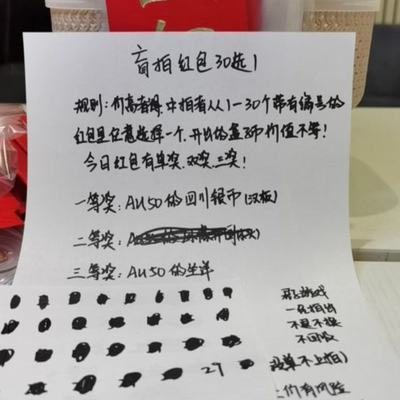 盲拍红包30选1
规则:价高者得,中拍者从1-30个带有编号的
红包里任意选择一个,开出的盒子币价值不等!
今日红包有单奖,双奖,三奖!
一等奖:AU50的四川银币(汉版)
二等奖:
三等奖:AU50的坐洋
27
一旦拍出
不退不换
不回收
单不上拍)
有风险